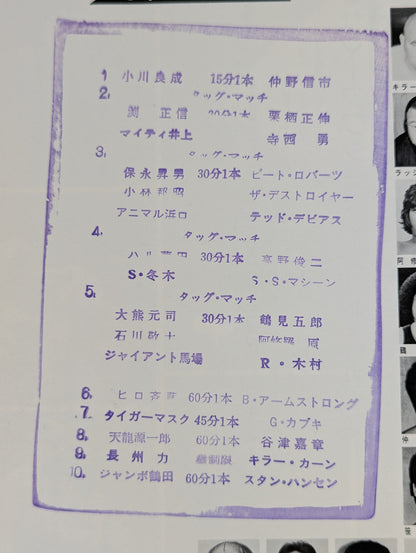 1. 小川良成 15分1本 仲野信市
2. タッグ・マッチ
渕 正信 20分1本 栗栖正伸
マイティ井上 寺西 勇
3. タッグ・マッチ
保永昇男 30分1本 ピート・ロバーツ
小林邦昭 ザ・デストロイヤー
アニマル浜口 テッド・デビアス
4. タッグ・マッチ
30分1本 高野俊二
S・冬木 S・S・マシーン
5. タッグ・マッチ
大熊元司 30分1本 鶴見五郎
石川敬士 阿修羅 原
ジャイアント馬場 R・木村
6. ヒロ斉藤 60分1本 B・アームストロング
7. タイガーマスク 45分1本 G・カブキ
8. 天龍源一郎 60分1本 谷津嘉章
9. 長州 力 無制限 キラー・カーン
10. ジャンボ鶴田 60分1本 スタン・ハンセン
キラー
ラッシ
阿修
鶴
仲
笹